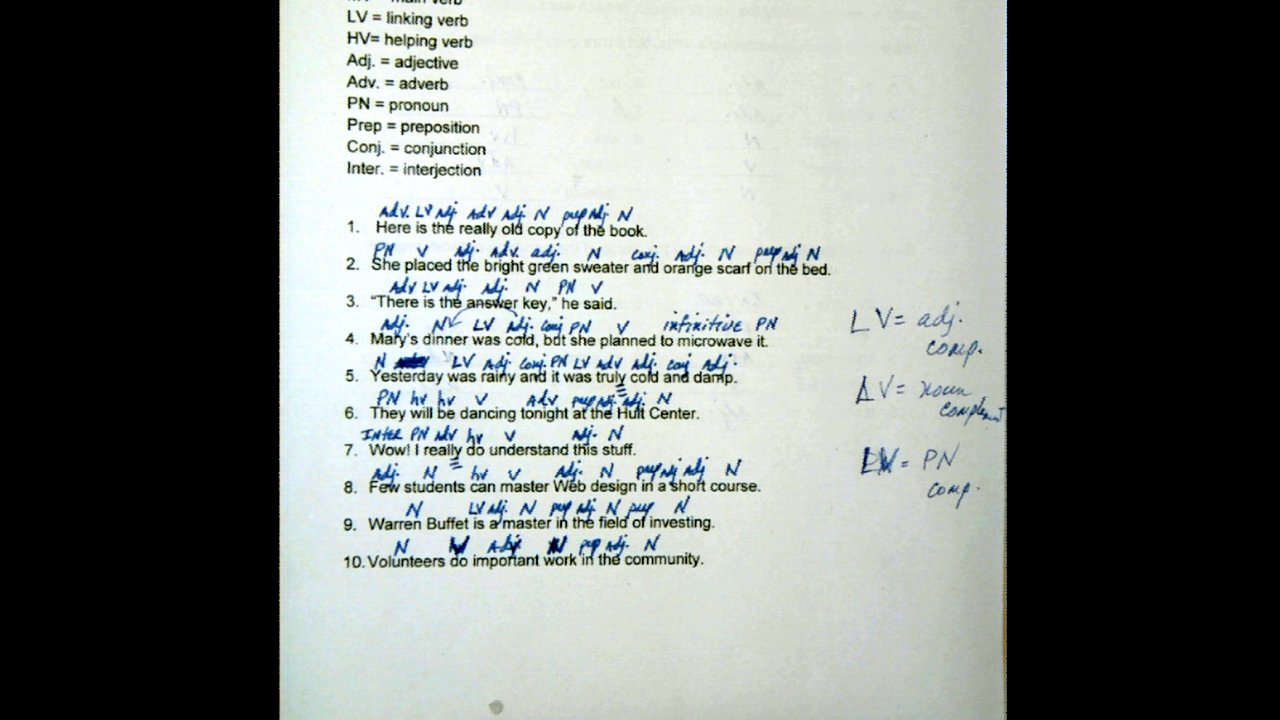 MV = main verb
LV = linking verb
HV= helping verb
Adj. = adjective
Adv. = adverb
PN = pronoun
Prep = preposition
Conj. = conjunction
Inter. = interjection
Adv. LV Adj. Adv Adj. N prep Adj. N
1. Here is the really old copy of the book.
PN V Adj. Adv. adj. N conj. Adj. N prep adj N
2. She placed the bright green sweater and orange scarf on the bed.
Adv LV adj. Adj. N PN V
3. "There is the answer key," he said.
Adj. N LV Adj. conj PN V infinitive PN
4. Mary's dinner was cold, but she planned to microwave it.
N LV Adj. conj. PN LV Adv Adj. conj Adj.
5. Yesterday was rainy and it was truly cold and damp.
PN hv hv V Adv prep adj. adj. N
6. They will be dancing tonight at the Hult Center.
INTER PN adv hv V adj. N
7. Wow! I really do understand this stuff.
Adj. N hv V Adj. N prep adj adj N
8. Few students can master Web design in a short course.
N LV adj. N prep adj. N prep N
9. Warren Buffet is a master in the field of investing.
N Adj. N prep Adj. N
10. Volunteers do important work in the community.
LV = adj.
comp.
LV = noun
complement
LV = PN
comp.